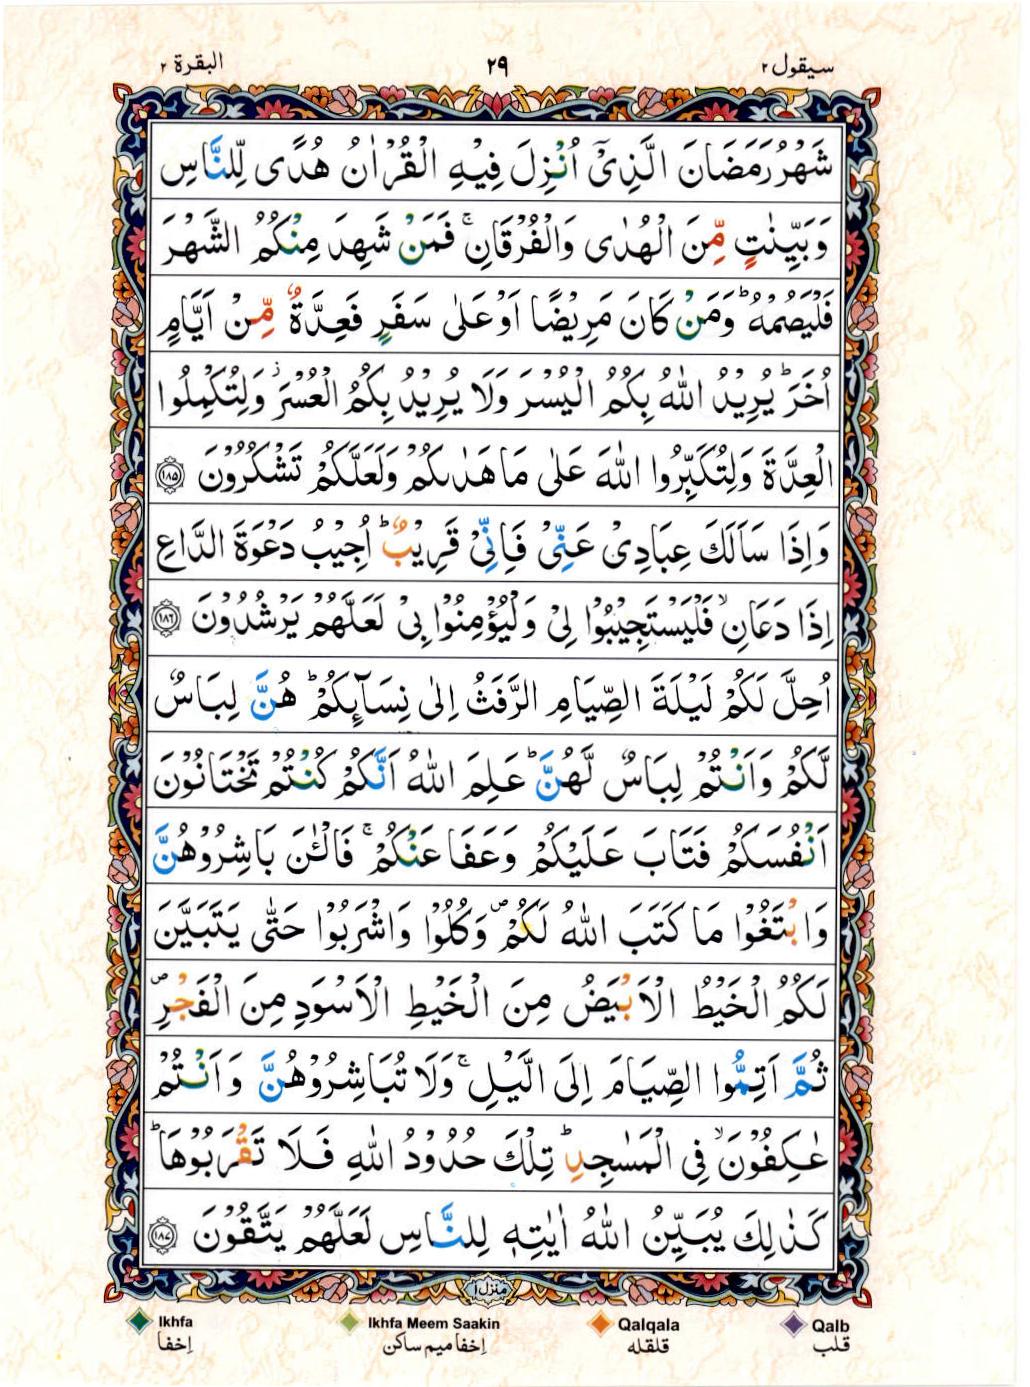 سيقول ٢ ٢٩ البقرة ٢
شَهْرُ رَمَضَانَ الَّذِىْٓ اُنْزِلَ فِيْهِ الْقُرْاٰنُ هُدًى لِّلنَّاسِ
وَبَيِّنٰتٍ مِّنَ الْهُدٰى وَالْفُرْقَانِۚ فَمَنْ شَهِدَ مِنْكُمُ الشَّهْرَ
فَلْيَصُمْهُؕ وَمَنْ كَانَ مَرِيْضًا اَوْ عَلٰى سَفَرٍ فَعِدَّةٌ مِّنْ اَيَّامٍ
اُخَرَؕ يُرِيْدُ اللّٰهُ بِكُمُ الْيُسْرَ وَلَا يُرِيْدُ بِكُمُ الْعُسْرَؗ وَلِتُكْمِلُوا
الْعِدَّةَ وَلِتُكَبِّرُوا اللّٰهَ عَلٰى مَا هَدٰىكُمْ وَلَعَلَّكُمْ تَشْكُرُوْنَ ١٨٥
وَاِذَا سَاَلَكَ عِبَادِىْ عَنِّىْ فَاِنِّىْ قَرِيْبٌؕ اُجِيْبُ دَعْوَةَ الدَّاعِ
اِذَا دَعَانِۙ فَلْيَسْتَجِيْبُوْا لِىْ وَلْيُؤْمِنُوْا بِىْ لَعَلَّهُمْ يَرْشُدُوْنَ ١٨٦
اُحِلَّ لَكُمْ لَيْلَةَ الصِّيَامِ الرَّفَثُ اِلٰى نِسَآئِكُمْؕ هُنَّ لِبَاسٌ
لَّكُمْ وَاَنْتُمْ لِبَاسٌ لَّهُنَّؕ عَلِمَ اللّٰهُ اَنَّكُمْ كُنْتُمْ تَخْتَانُوْنَ
اَنْفُسَكُمْ فَتَابَ عَلَيْكُمْ وَعَفَا عَنْكُمْۚ فَالْـٰٔنَ بَاشِرُوْهُنَّ
وَابْتَغُوْا مَا كَتَبَ اللّٰهُ لَكُمْ۪ وَكُلُوْا وَاشْرَبُوْا حَتّٰى يَتَبَيَّنَ
لَكُمُ الْخَيْطُ الْاَبْيَضُ مِنَ الْخَيْطِ الْاَسْوَدِ مِنَ الْفَجْرِ۪
ثُمَّ اَتِمُّوا الصِّيَامَ اِلَى الَّيْلِۚ وَلَا تُبَاشِرُوْهُنَّ وَاَنْتُمْ
عٰكِفُوْنَۙ فِى الْمَسٰجِدِؕ تِلْكَ حُدُوْدُ اللّٰهِ فَلَا تَقْرَبُوْهَاؕ
كَذٰلِكَ يُبَيِّنُ اللّٰهُ اٰيٰتِهٖ لِلنَّاسِ لَعَلَّهُمْ يَتَّقُوْنَ ١٨٧
منزل ١
Ikhfa Ikhfa Meem Saakin Qalqala Qalb
إخفا إخفا ميم ساكن قلقله قلب